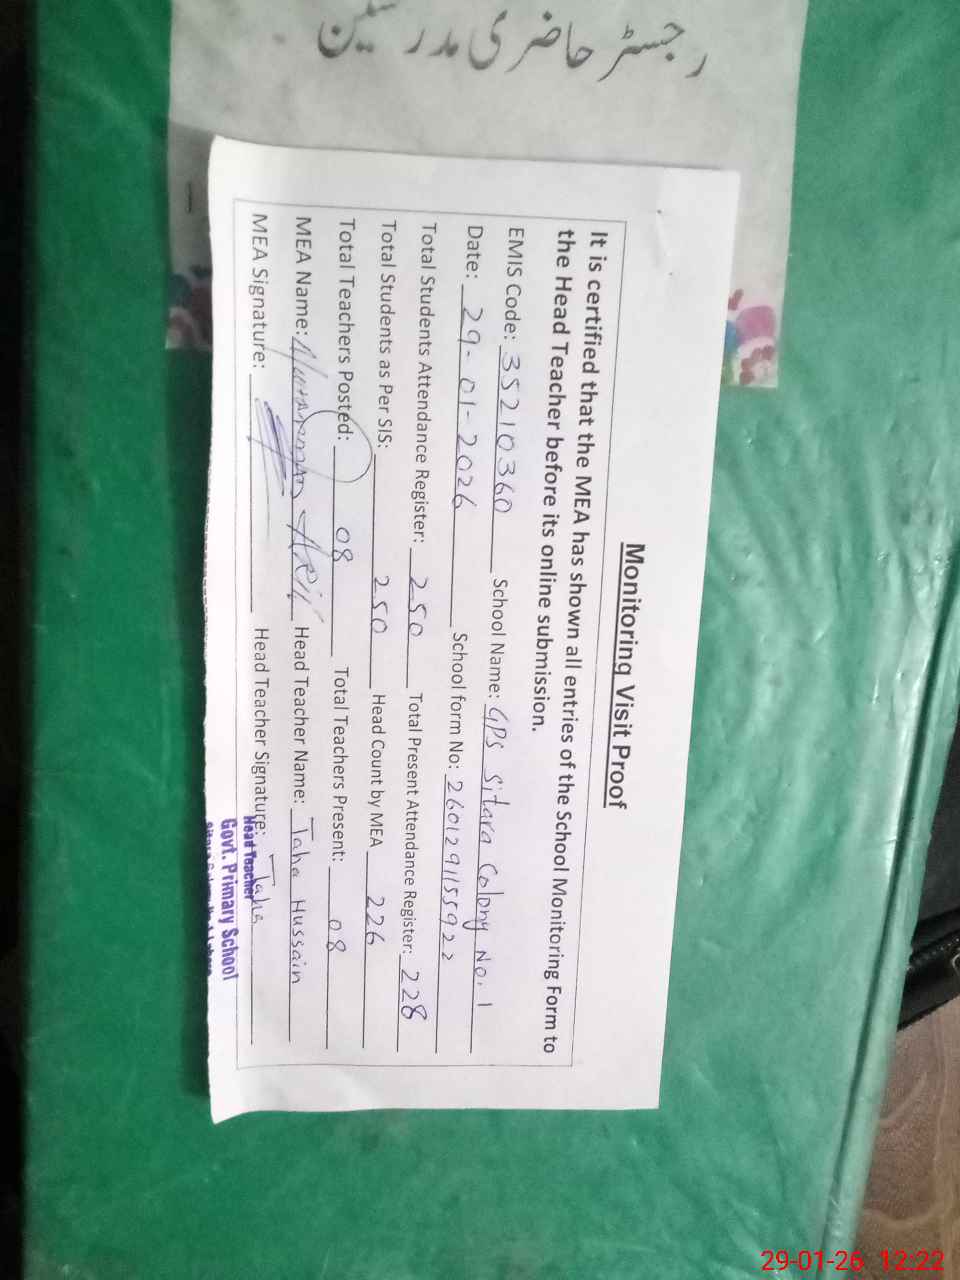 رجسٹر حاضری مدرسین
Monitoring Visit Proof
It is certified that the MEA has shown all entries of the School Monitoring Form to
the Head Teacher before its online submission.
EMIS Code: 35210360 School Name: GPS Sitara Colony No. 1
Date: 29-01-2026 School form No: 2601291155922
Total Students Attendance Register: 250 Total Present Attendance Register: 228
Total Students as Per SIS: 250 Head Count by MEA 226
Total Teachers Posted: 08 Total Teachers Present: 08
MEA Name: Muhammad Arif Head Teacher Name: Taha Hussain
MEA Signature: Head Teacher Signature: Taha
Head Teacher
Govt. Primary School
29-01-26 12:22